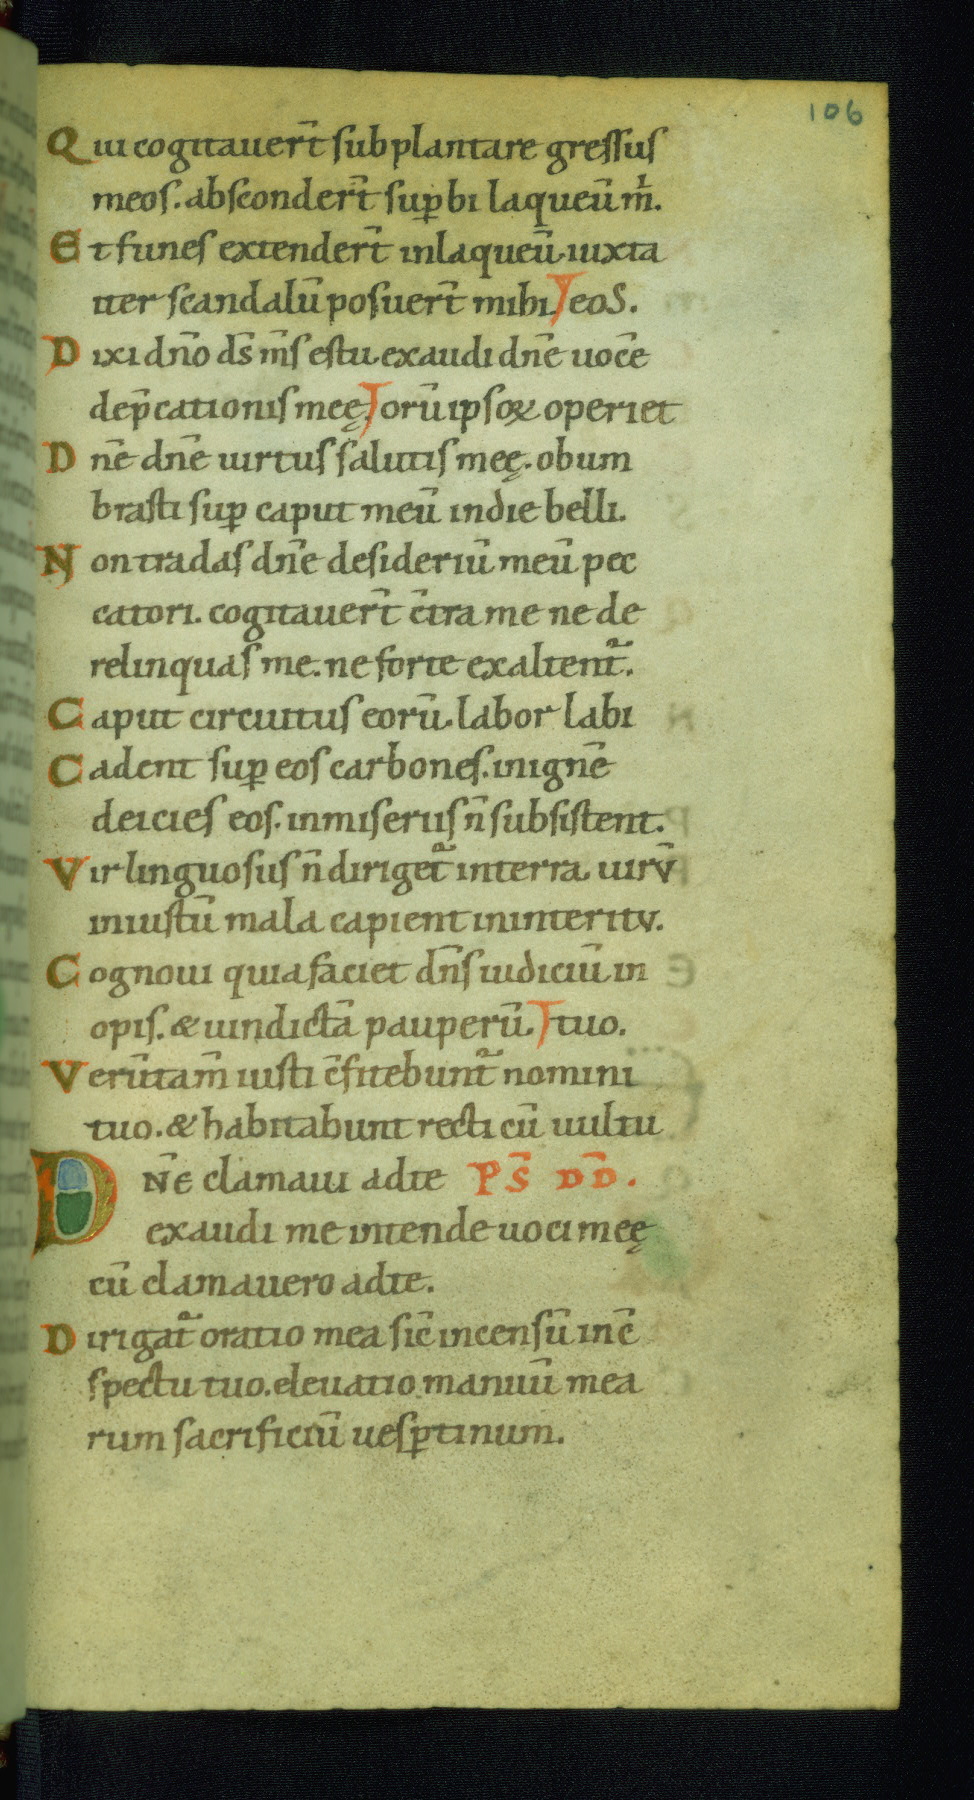 106
Qui cogitauer̄t subplantare gressus
meos. absconder̄t sup̄bi laqueū m̄.
Et funes extender̄t inlaqueū. iuxta
iter scandalū posuer̄t mihi. eos.
Dixi dn̄o ds̄ m̄s estu. exaudi dn̄e uocē
dep̄cationis meę. orū ipsoꝝ operiet
Dn̄e dn̄e uirtus salutis meę. obum
brasti sup̄ caput meū indie belli.
Non tradas dn̄e desideriū meū pec
catori. cogitauer̄t c̄tra me ne de
relinquas me. ne forte exaltent᷑.
Caput circuitus eorū. labor labi
Cadent sup̄ eos carbones. inignē
deicies eos. inmiseriis n̄ subsistent.
Vir linguosus n̄ diriget᷑ interra. uirū
iniustū mala capient ininteritu.
Cognoui quia faciet dn̄s iudiciū in
opis. & uindictā pauperū. tuo.
Verūtam̄ iusti c̄fitebunt᷑ nomini
tuo. & habitabunt recti cū uultu
Dn̄e clamaui adte PS̄ DD̄.
exaudi me intende uoci meę
cū clamauero adte.
Dirigat᷑ oratio mea sic̄ incensū inc̄
spectu tuo. eleuatio manuū mea
rum sacrificiū uesp̄tinum.